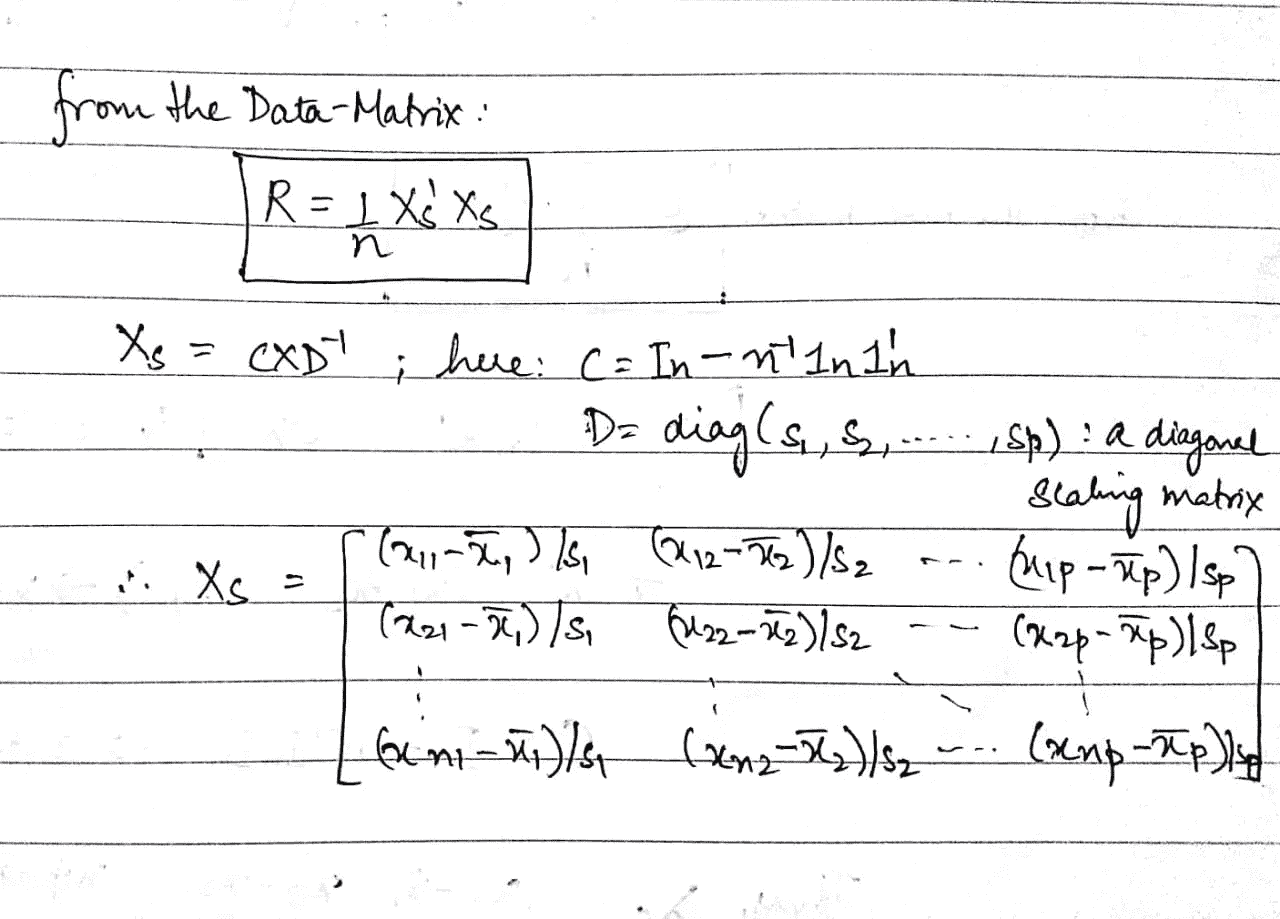 from the Data-Matrix:
R = 1/n Xs' Xs
Xs = CXD⁻¹ ; here: C = In − n⁻¹ 1n 1n'
D = diag(s₁, s₂, ......, sp) : a diagonal
scaling matrix
∴ Xs = [ (x11 − x̄1)/s1 (x12 − x̄2)/s2 --- (x1p − x̄p)/sp
(x21 − x̄1)/s1 (x22 − x̄2)/s2 -- (x2p − x̄p)/sp
⋮ ⋮ ⋱ ⋮
(xn1 − x̄1)/s1 (xn2 − x̄2)/s2 --- (xnp − x̄p)/sp ]